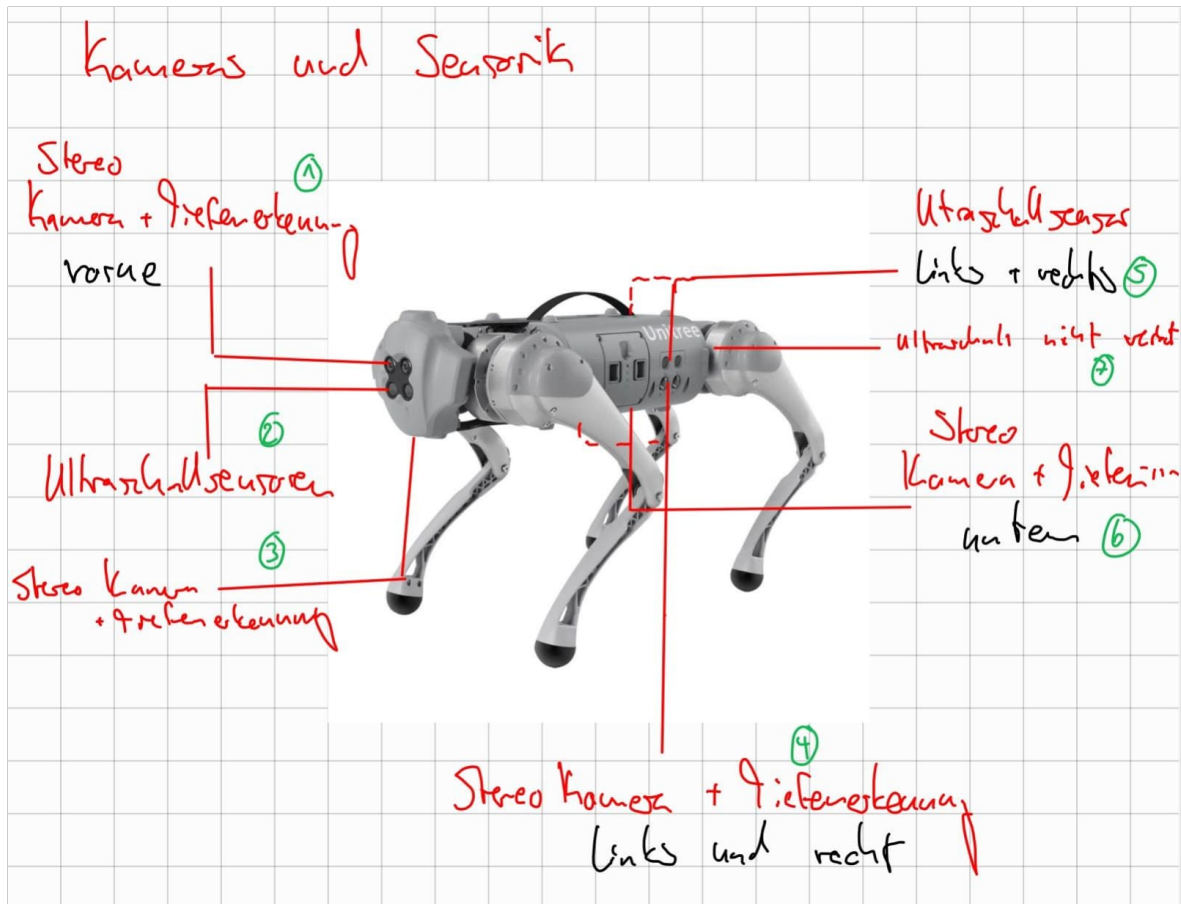 Kameras und Sensorik
Stereo
①
Kamera + Tiefenerkennung
vorne
②
Ultraschallsensoren
③
Stereo Kamera
+ Tiefenerkennung
Unitree
Utraschallsensor
links + rechts ⑤
Ultraschall nicht
⑦
Stereo
Kamera +
unten ⑥
④
Stereo Kamera + Tiefenerkennung
links und recht